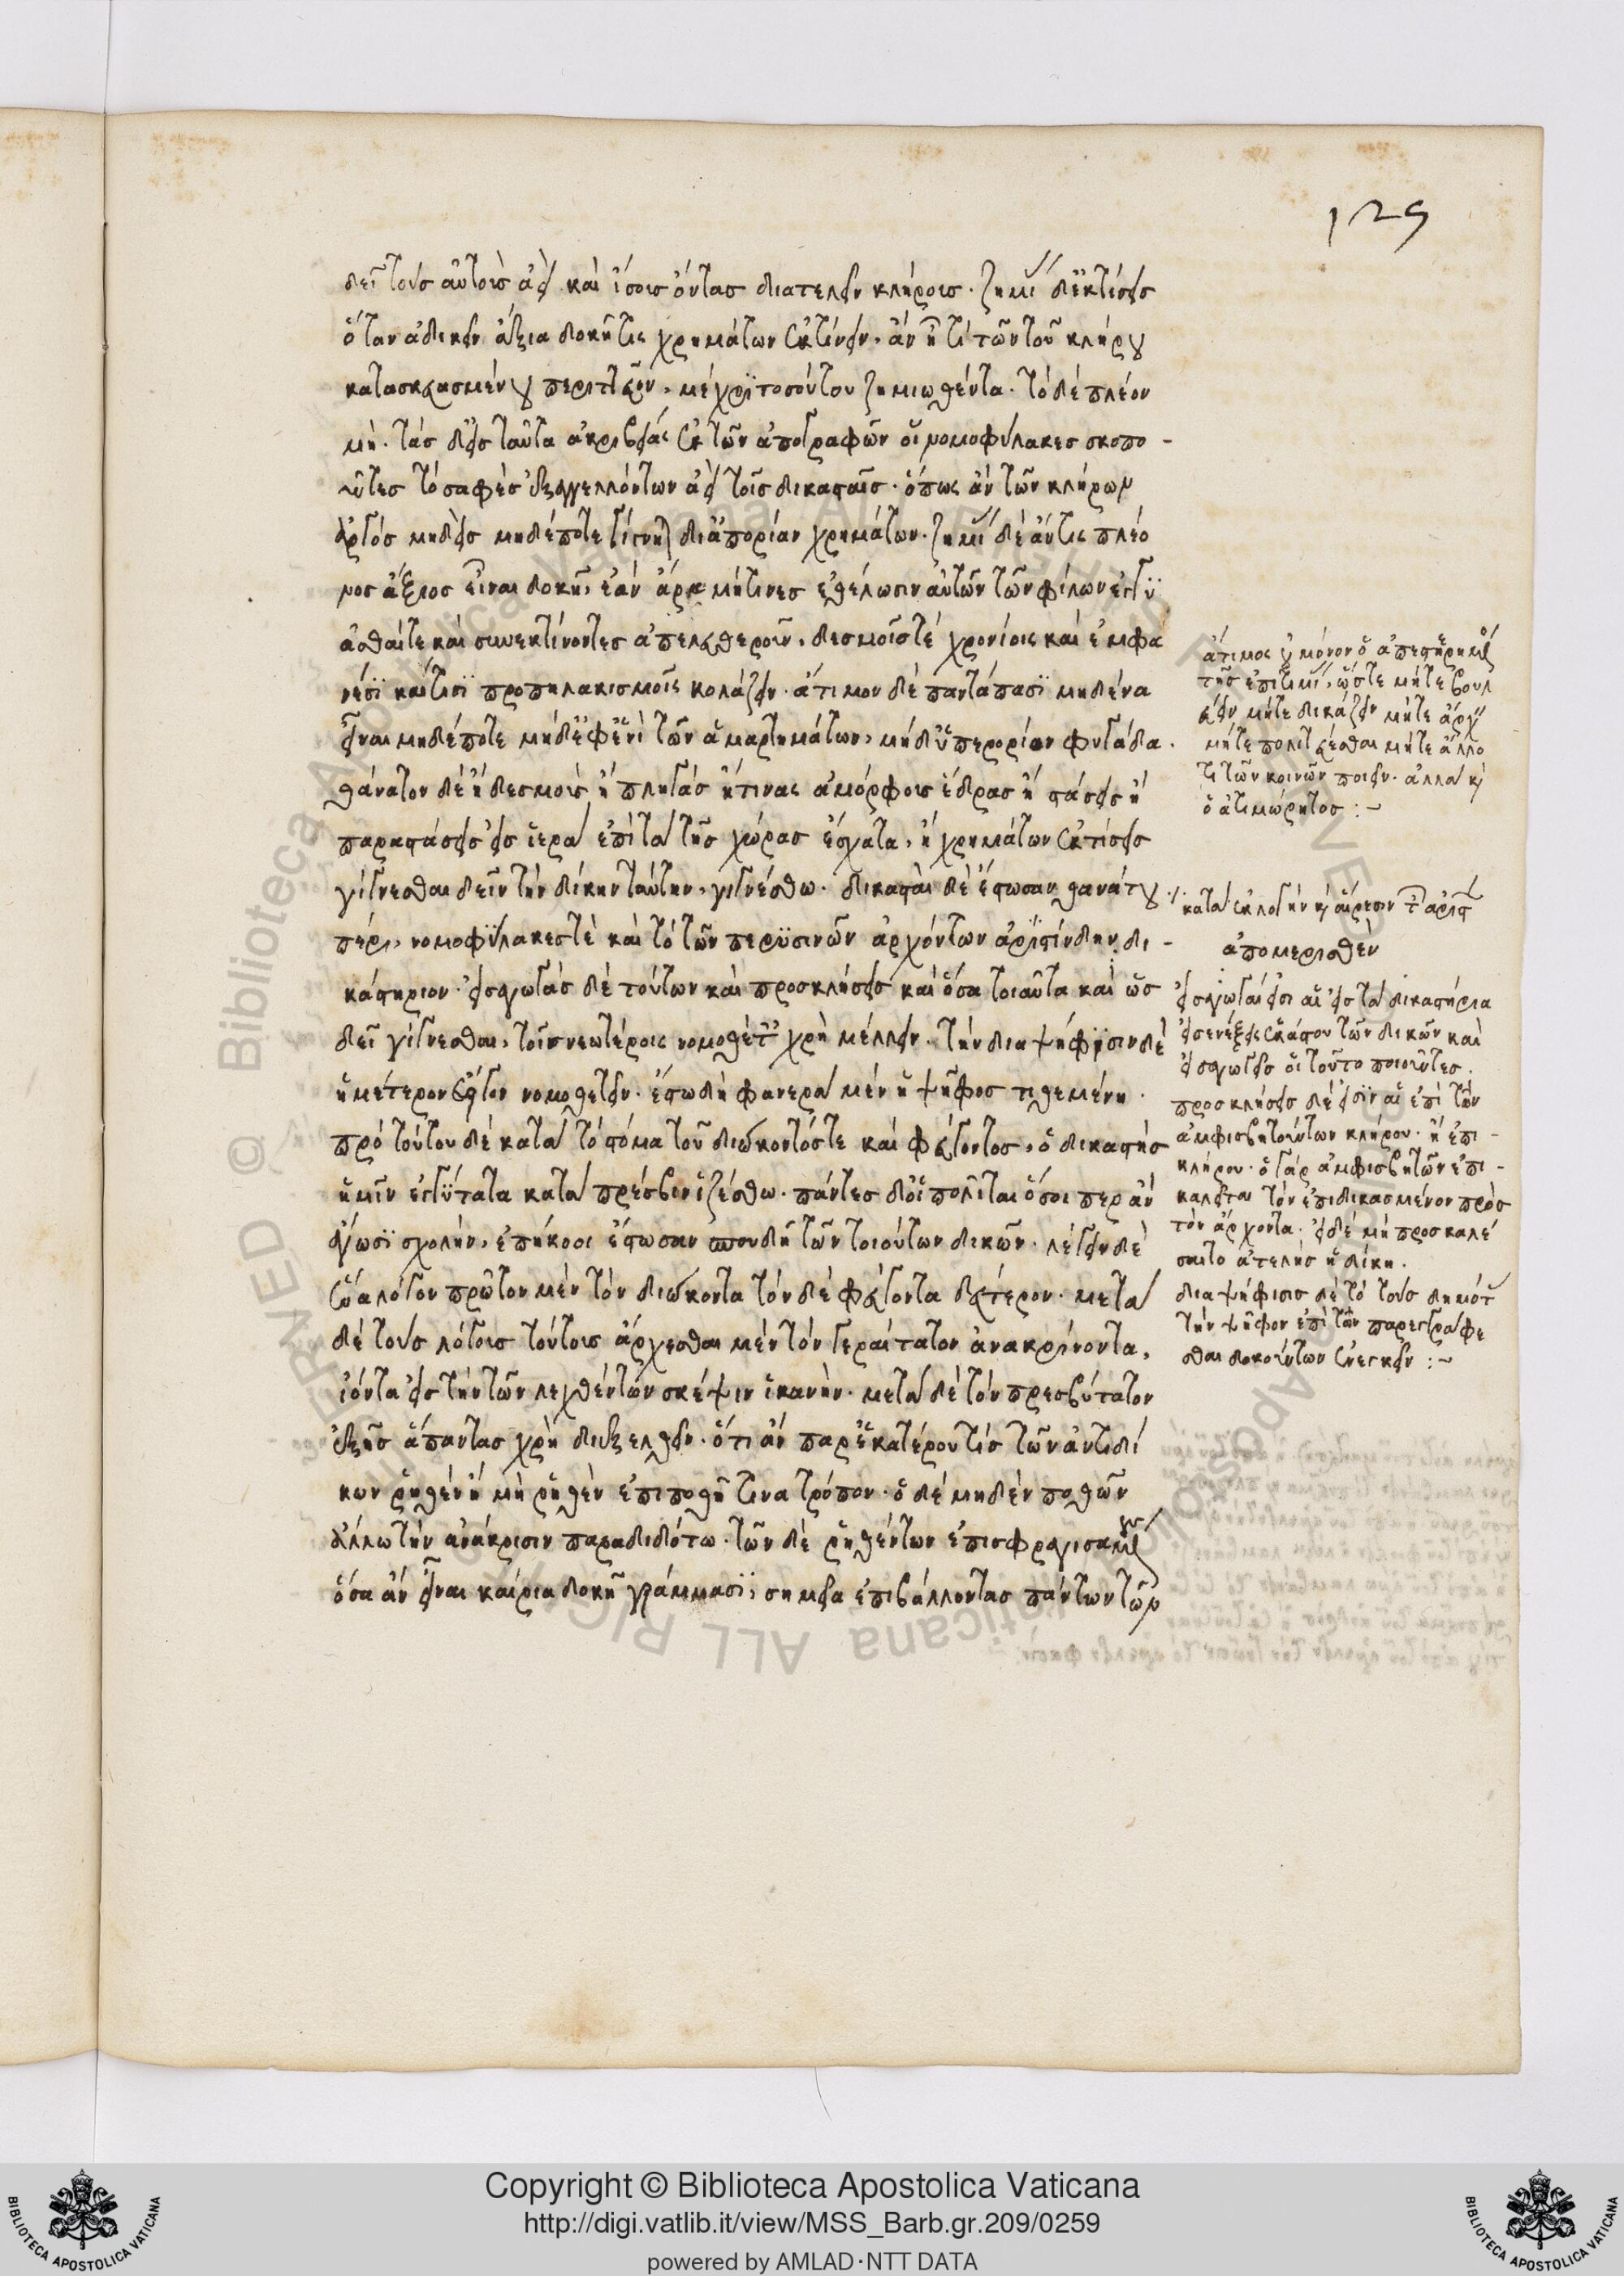 129
δεῖ τοὺς αὐτοὺς ἀεὶ καὶ ἴσους ὄντας διατελεῖν κλήρους. ζημί δ' ἐκτίσεις
ὅταν ἀδικεῖν ἄξια δοκῇ τις χρημάτων ἐκτίνειν, ἂν ᾖ τί τῶν τοῦ κλήρου
κατασκευασμένου περιττεῦον, μέχρι τοσούτου ζημιωθέντα. τὸ δὲ πλέον
μή. τὰς δ' εἰς ταῦτα ἀκριβείας ἐκ τῶν ἀπογραφῶν οἱ νομοφύλακες σκοπο-
ῦντες τὸ σαφὲς ἐξαγγελλόντων ἀεὶ τοῖς δικασταῖς. ὅπως ἂν τῶν κλήρων
ἀργὸς μηδεὶς μηδέποτε γίγνηται δι' ἀπορίαν χρημάτων. ζημί δὲ ἄν τις πλέο
νος ἄξιος εἶναι δοκῇ, ἐὰν ἄρα μή τινες ἐθέλωσιν αὐτῶν τῶν φίλων ἐγγυ
ᾶσθαί τε καὶ συνεκτίνοντες ἀπελευθεροῦν, δεσμοῖς τὲ χρονίοις καὶ ἐμφα
νέσι καί τισι προπηλακισμοῖς κολάζειν. ἄτιμον δὲ παντάπασι μηδένα
εἶναι μηδέποτε μηδ' ἐφ' ἑνὶ τῶν ἁμαρτημάτων, μηδ' ὑπερορίαν φυγάδα.
θάνατον δὲ ἢ δεσμοὺς ἢ πληγὰς ἤ τινας ἀμόρφους ἕδρας ἢ στάσεις ἢ
παραστάσεις εἰς ἱερὰ ἐπὶ τὰ τῆς χώρας ἔσχατα, ἢ χρημάτων ἐκτίσεις
γίγνεσθαι δεῖν τὴν δίκην ταύτην, γιγνέσθω. δικασταὶ δὲ ἔστωσαν θανάτου
πέρι, νομοφύλακές τὲ καὶ τὸ τῶν περυσινῶν ἀρχόντων ἀριστίνδην δι-
καστήριον. εἰσαγωγὰς δὲ τούτων καὶ προσκλήσεις καὶ ὅσα τοιαῦτα καὶ ὡς
δεῖ γίγνεσθαι, τοῖς νεωτέροις νομοθέτ χρὴ μέλλειν. τὴν διαψήφισιν δὲ
ἡμέτερον ἔργον νομοθετεῖν. ἔστω δὴ φανερὰ μὲν ἡ ψῆφος τιθεμένη.
πρὸ τούτου δὲ κατὰ τὸ στόμα τοῦ διώκοντός τε καὶ φεύγοντος, ὁ δικαστὴς
ἡμῖν ἐγγύτατα κατὰ πρέσβιν ἱζέσθω. πάντες δ' οἱ πολῖται ὅσοι περ ἂν
ἄγωσι σχολὴν, ἐπήκοοι ἔστωσαν σπουδῇ τῶν τοιούτων δικῶν. λέγειν δὲ
ἕνα λόγον πρῶτον μὲν τὸν διώκοντα τὸν δὲ φεύγοντα δεύτερον. μετὰ
δὲ τοὺς λόγους τούτους ἄρχεσθαι μὲν τὸν γεραίτατον ἀνακρίνοντα,
ἰόντα εἰς τὴν τῶν λεχθέντων σκέψιν ἱκανὴν. μετὰ δὲ τὸν πρεσβύτατον
ἑξῆς ἅπαντας χρὴ διεξελθεῖν. ὅτι ἂν παρ' ἑκατέρου τίς τῶν ἀντιδί
κων ῥηθὲν ἢ μὴ ῥηθὲν ἐπιποθῇ τινα τρόπον. ὁ δὲ μηδὲν ποθῶν
ἄλλῳ τὴν ἀνάκρισιν παραδιδότω. τῶν δὲ ῥηθέντων ἐπισφραγισαμέν
ὅσα ἂν εἶναι καίρια δοκῇ γράμμασι, σημεῖα ἐπιβάλλοντας πάντων τῶν
ἄτιμος οὐ μόνον ὁ ἀπεστερημέν
τῆς ἐπιτιμί, ὥστε μήτε βουλ
εύειν μήτε δικάζειν μήτε ἄρχ
μήτε πολιτεύεσθαι μήτε ἄλλο
τι τῶν κοινῶν ποιεῖν. ἀλλὰ καὶ
ὁ ἀτιμώρητος :~
κατὰ ἐκλογὴν καὶ αἵρεσιν τ ἀρίστ
ἀπομερισθὲν
εἰσαγωγαί εἰσι αἱ εἰς τὰ δικαστήρια
εἰσενέξεις ἑκάστου τῶν δικῶν καὶ
εἰσαγωγεῖς οἱ τοῦτο ποιοῦντες.
προσκλήσεις δέ εἰσιν αἱ ἐπὶ τῶν
ἀμφισβητούντων κλήρου. ἢ ἐπι-
κλήρου. ὁ γὰρ ἀμφισβητῶν ἐπι-
καλεῖται τὸν ἐπιδικασμένον πρὸς
τὸν ἄρχοντα. εἰ δὲ μὴ προσκαλέ
σαιτο ἀτελὴς ἡ δίκη.
διαψήφισις δὲ τὸ τοὺς δημότ
τὴν ψῆφον ἐπὶ τῶν παρεγγράφε
σθαι δοκούντων ἐνεγκεῖν :~
Copyright © Biblioteca Apostolica Vaticana
http://digi.vatlib.it/view/MSS_Barb.gr.209/0259
powered by AMLAD·NTT DATA
BIBLIOTECA APOSTOLICA VATICANA
BIBLIOTECA APOSTOLICA VATICANA